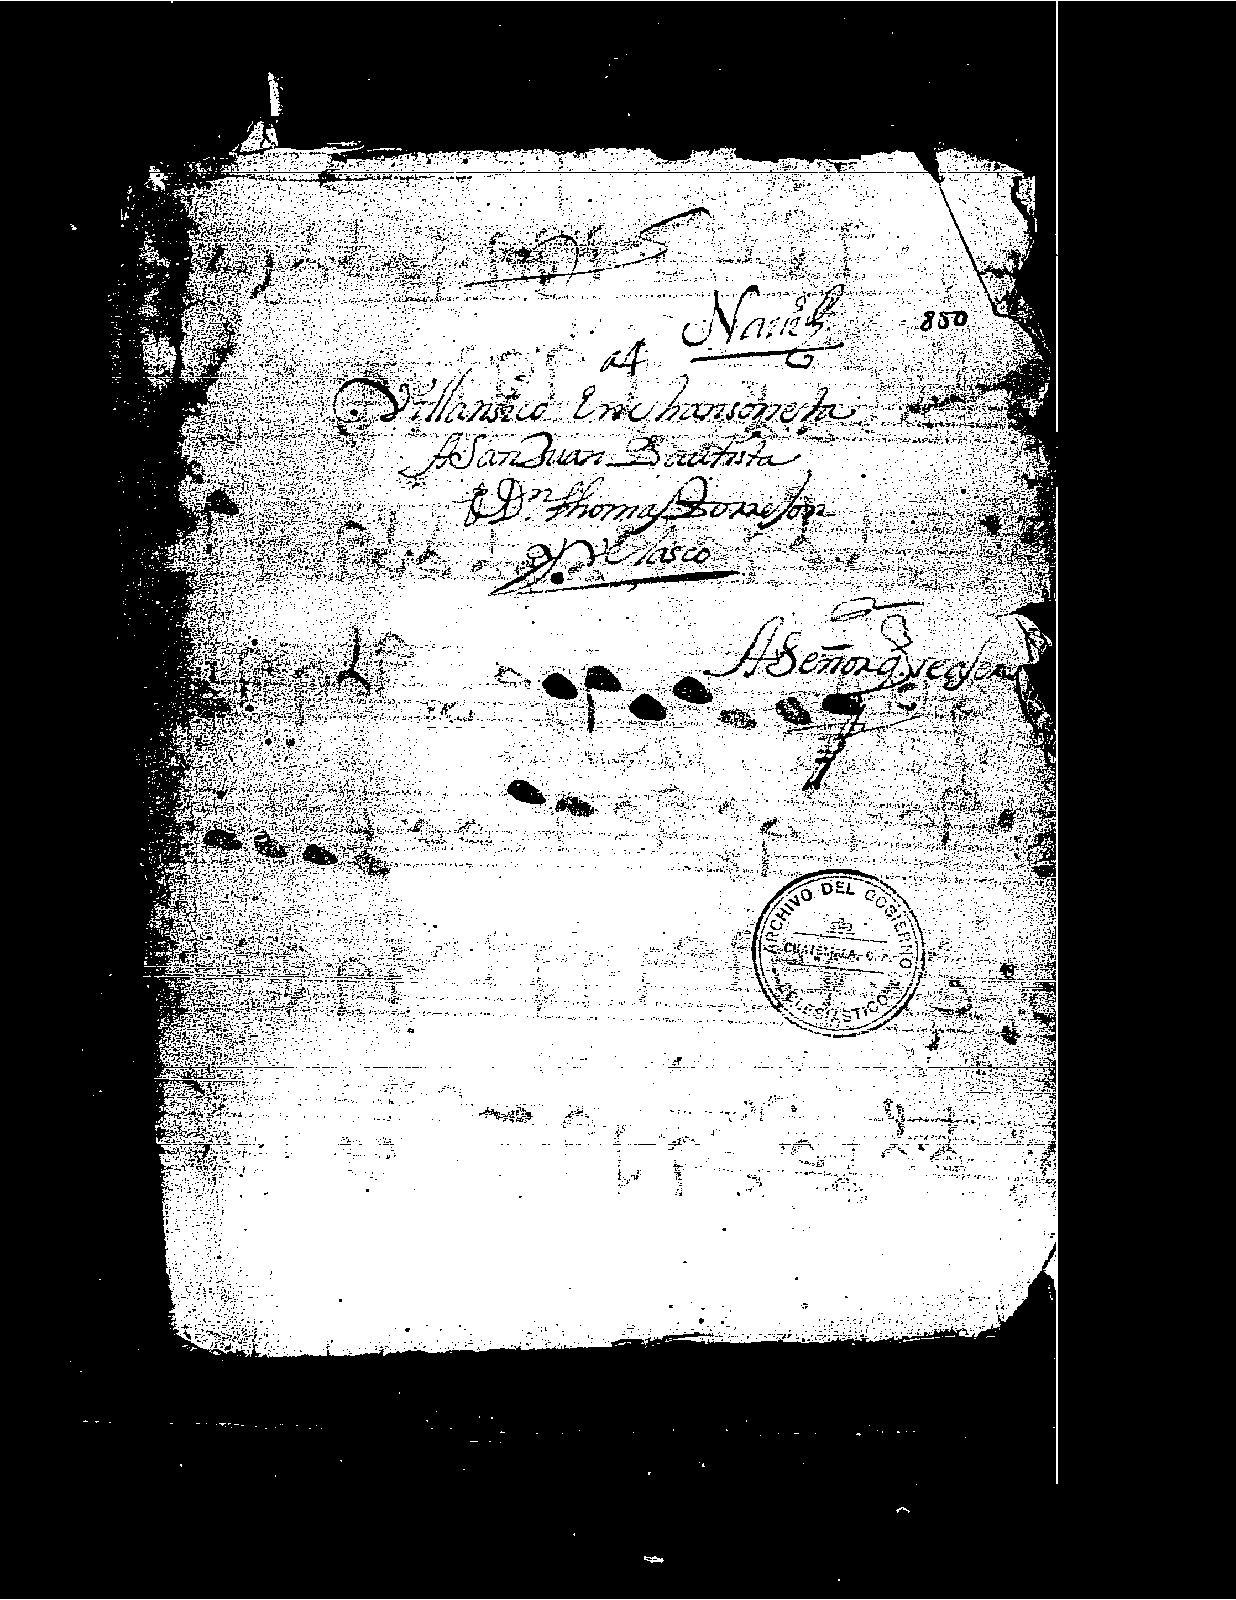 850
a4
Villansico En chansoneta
A San Juan Bautista
Dn. Thomas Torrejon
Y. Velasco
A Señor
ARCHIVO DEL GOBIERNO
GUATEMALA, C. A.
ECLESIASTICO